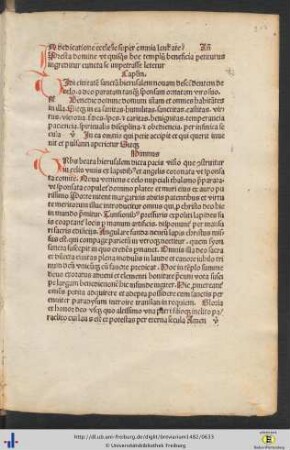 In dedicatione ecclesie super omnia
Presta domine ut quisquis hoc templum beneficia petiturus
ingreditur cuncta se impetrasse letetur
Caplm.
Vidi civitatem sanctam hierusalem novam descendentem de
celo a deo paratam tanquam sponsam ornatam viro suo.
Benedic domine domum istam et omnes habitates
in illa. Sitque in ea sanitas humilitas. sanctitas. castitas. vir-
tus. victoria. fides. spes. caritas. benignitas. temperantia
paciencia. spiritualis disciplina. obediencia. per infinita se
cula In ea omnis qui petit accipit et qui querit inve
nit et pulsanti aperietur Sitque
Himnus
Urbs beata hierusalem dicta pacis visio que construitur
in celis vivis ex lapidibus et angelis coronata ut sponsa
ta comite. Nova veniens e celo nupciali thalamo prepara-
ta ut sponsata copuletur domino platee et muri eius ex auro pu
rissimo Porte nitent margaritis aditis patentibus et virtu
te meritorum illuc introducitur omnis qui pro christi
in mundo premitur. Tunsionibus pressuris expoliti lapides su
is coaptantur locis per manus artificis. disponuntur per mansu
ri sacris edificiis. Angulare fundamentum lapis christus mis
sus est qui compage parietis in utroque nectitur. quem syon
sancta suscepit in quo credens permanet. Omnis illa deo sacra
et dilecta civitas plena modulis in laude et canore iubilo tri
num deum unicumque cum favore predicat. Hoc in templo summe
deus exoratus adveni et clementi bonitate precum vota susci
pe largam benedictionem hic infunde iugiter. Hic promereantur
omnes petita adquirere et adepta possidere cum sanctis per
enniter paradysum introire translati in requiem. Gloria
et honor deo usquequo altissimo una patri filioque inclito pa/
raclito cui laus est et potestas per eterna secula Amen
http://dl.ub.uni-freiburg.de/diglit/breviarium1482/0633
© Universitätsbibliothek Freiburg